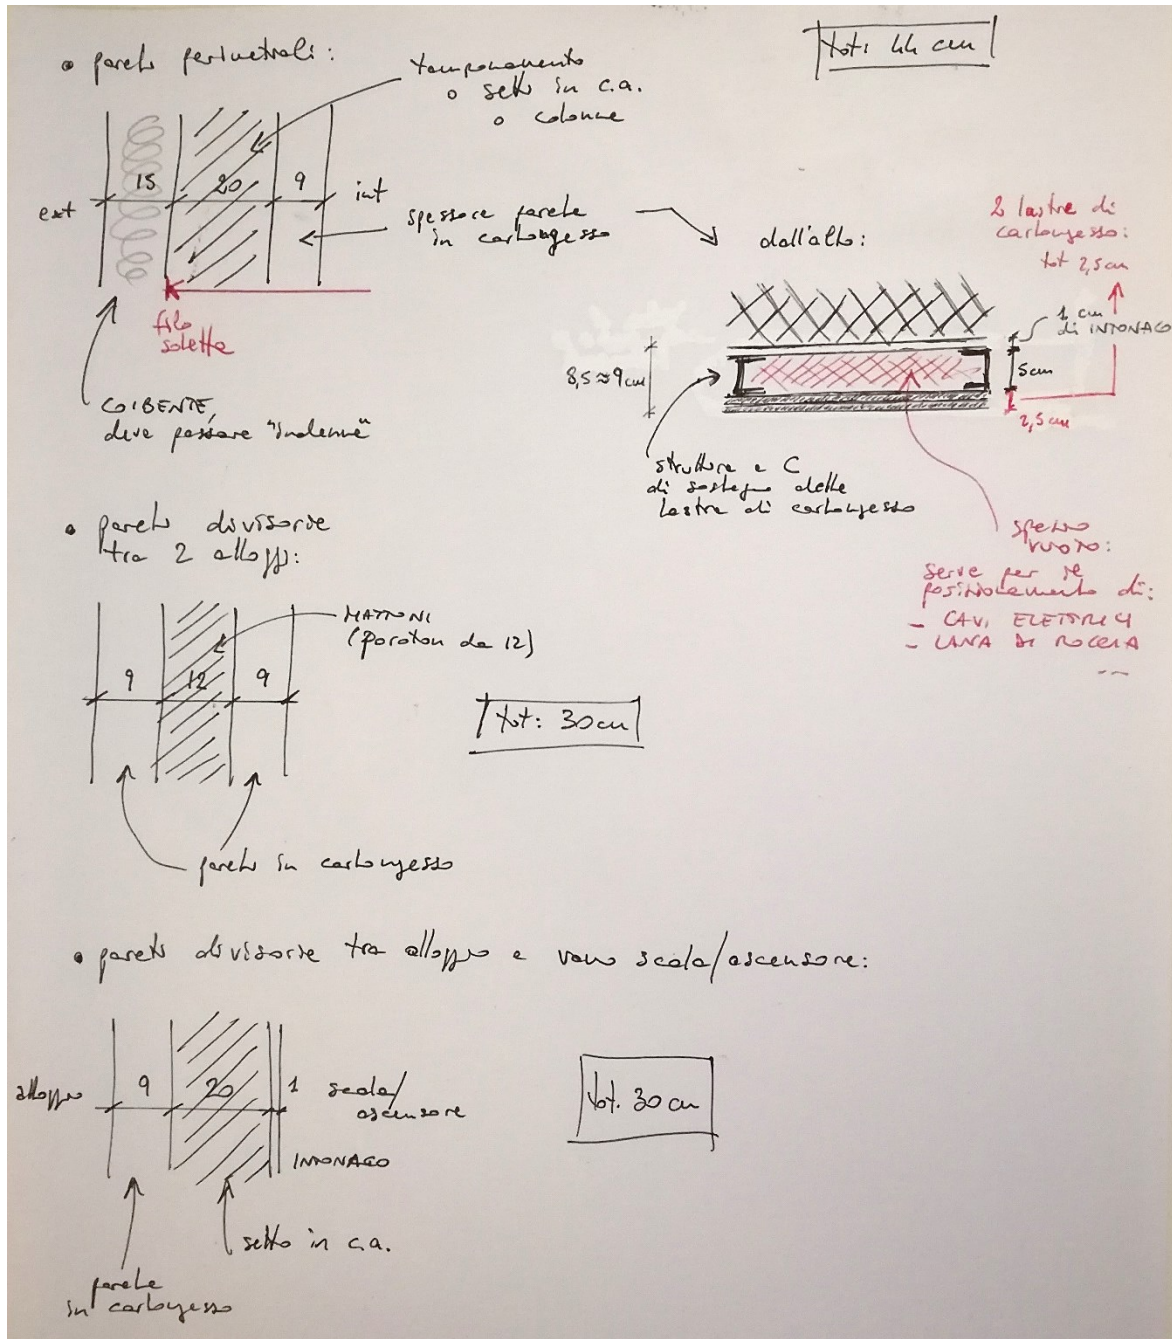 • pareti perimetrali:
tot: 44 cm
tamponamento
o setti in c.a.
o colonne
15
20
9
ext
int
spessore parete
in cartongesso
filo
soletta
COIBENTE,
deve passare "indenne"
dall'alto:
2 lastre di
cartongesso:
tot 2,5cm
1 cm
di INTONACO
8,5≈9cm
5cm
2,5cm
struttura a C
di sostegno delle
lastre di cartongesso
spazio
vuoto:
serve per il
posizionamento di:
- CAVI ELETTRICI
- LANA DI ROCCIA
...
• pareti divisorie
tra 2 alloggi:
MATTONI
(poroton da 12)
9
12
9
tot: 30cm
pareti in cartongesso
• pareti divisorie tra alloggio e vano scala/ascensore:
alloggio
9
20
1
scala/
ascensore
INTONACO
tot. 30 cm
setto in c.a.
parete
in cartongesso